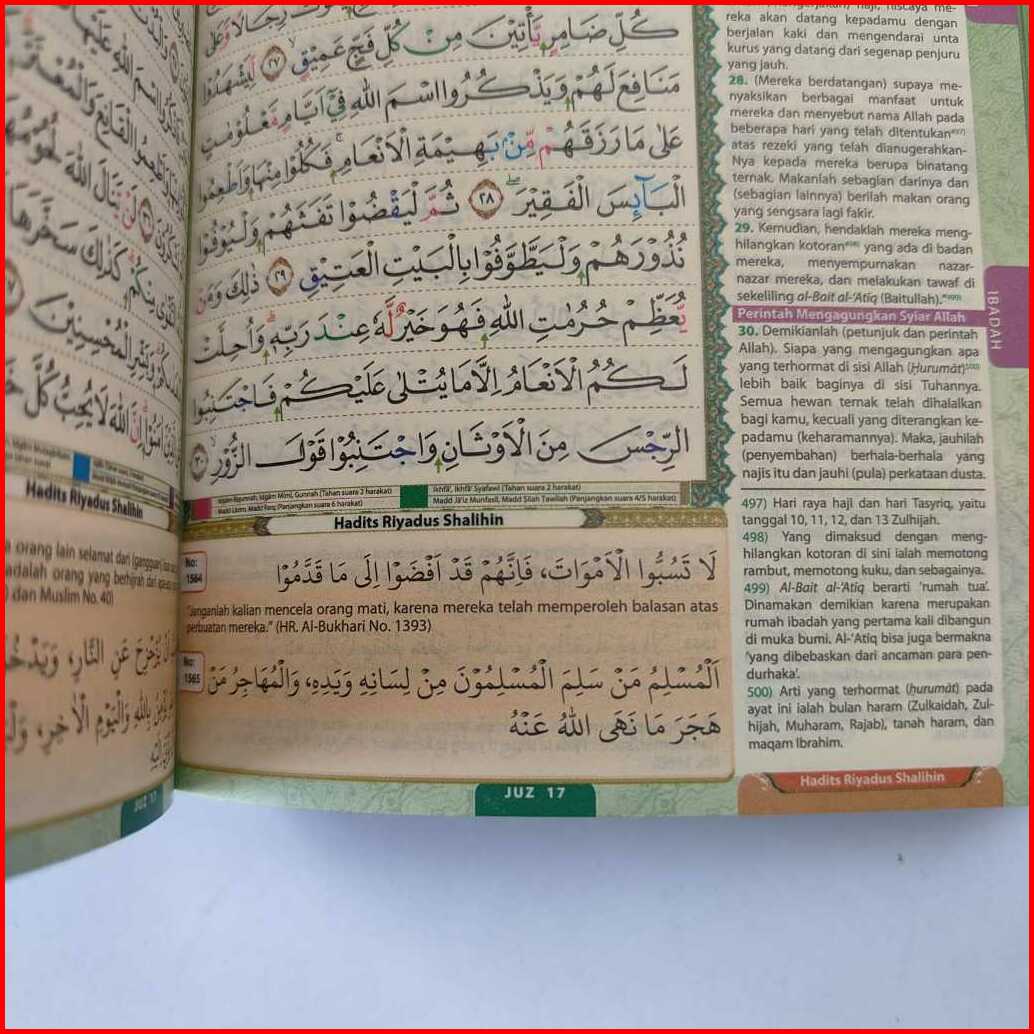 كُلِّ ضَامِرٍ يَّأْتِيْنَ مِنْ كُلِّ فَجٍّ عَمِيْقٍۙ ٢٧ لِّيَشْهَدُوْا
مَنَافِعَ لَهُمْ وَيَذْكُرُوا اسْمَ اللّٰهِ فِيْٓ اَيَّامٍ مَّعْلُوْمٰتٍ
عَلٰى مَا رَزَقَهُمْ مِّنْۢ بَهِيْمَةِ الْاَنْعَامِۚ فَكُلُوْا مِنْهَا وَاَطْعِمُوا
الْبَاۤىِٕسَ الْفَقِيْرَۖ ٢٨ ثُمَّ لْيَقْضُوْا تَفَثَهُمْ وَلْيُوْفُوْا
نُذُوْرَهُمْ وَلْيَطَّوَّفُوْا بِالْبَيْتِ الْعَتِيْقِ ٢٩ ذٰلِكَ وَمَنْ
يُّعَظِّمْ حُرُمٰتِ اللّٰهِ فَهُوَ خَيْرٌ لَّهٗ عِنْدَ رَبِّهٖۗ وَاُحِلَّتْ
لَكُمُ الْاَنْعَامُ اِلَّا مَا يُتْلٰى عَلَيْكُمْ فَاجْتَنِبُوا
الرِّجْسَ مِنَ الْاَوْثَانِ وَاجْتَنِبُوْا قَوْلَ الزُّوْرِۙ ٣٠
Ikhfā', Ikhfā' Syafawī (Tahan suara 2 harakat)
Madd Jā'iz Munfasil, Madd Silah Tawilah (Panjangkan suara 4/5 harakat)
Hadits Riyadus Shalihin
No:
1564
لَا تَسُبُّوا الْاَمْوَاتَ، فَاِنَّهُمْ قَدْ اَفْضَوْا اِلَى مَا قَدَّمُوْا
"Janganlah kalian mencela orang mati, karena mereka telah memperoleh balasan atas
perbuatan mereka." (HR. Al-Bukhari No. 1393)
No:
1565
اَلْمُسْلِمُ مَنْ سَلِمَ الْمُسْلِمُوْنَ مِنْ لِسَانِهِ وَيَدِهِ، وَالْمُهَاجِرُ مَنْ
هَجَرَ مَا نَهَى اللّٰهُ عَنْهُ
JUZ 17
reka akan datang kepadamu dengan
berjalan kaki dan mengendarai unta
kurus yang datang dari segenap penjuru
yang jauh.
28. (Mereka berdatangan) supaya me-
nyaksikan berbagai manfaat untuk
mereka dan menyebut nama Allah pada
beberapa hari yang telah ditentukan497)
atas rezeki yang telah dianugerahkan-
Nya kepada mereka berupa binatang
ternak. Makanlah sebagian darinya dan
(sebagian lainnya) berilah makan orang
yang sengsara lagi fakir.
29. Kemudian, hendaklah mereka meng-
hilangkan kotoran498) yang ada di badan
mereka, menyempurnakan nazar-
nazar mereka, dan melakukan tawaf di
sekeliling al-Bait al-'Atīq (Baitullah)."499)
Perintah Mengagungkan Syiar Allah
30. Demikianlah (petunjuk dan perintah
Allah). Siapa yang mengagungkan apa
yang terhormat di sisi Allah (Ḥurumāt)500)
lebih baik baginya di sisi Tuhannya.
Semua hewan ternak telah dihalalkan
bagi kamu, kecuali yang diterangkan ke-
padamu (keharamannya). Maka, jauhilah
(penyembahan) berhala-berhala yang
najis itu dan jauhi (pula) perkataan dusta.
497) Hari raya haji dan hari Tasyriq, yaitu
tanggal 10, 11, 12, dan 13 Zulhijah.
498) Yang dimaksud dengan meng-
hilangkan kotoran di sini ialah memotong
rambut, memotong kuku, dan sebagainya.
499) Al-Bait al-'Atīq berarti 'rumah tua'.
Dinamakan demikian karena merupakan
rumah ibadah yang pertama kali dibangun
di muka bumi. Al-'Atīq bisa juga bermakna
'yang dibebaskan dari ancaman para pen-
durhaka'.
500) Arti yang terhormat (ḥurumāt) pada
ayat ini ialah bulan haram (Zulkaidah, Zul-
hijah, Muharam, Rajab), tanah haram, dan
maqam Ibrahim.
Hadits Riyadus Shalihin
IBADAH
Hadits Riyadus Shalihin
orang lain selamat dari (gangguan)
adalah orang yang berhijrah dari
dan Muslim No. 40)
JUZ 17